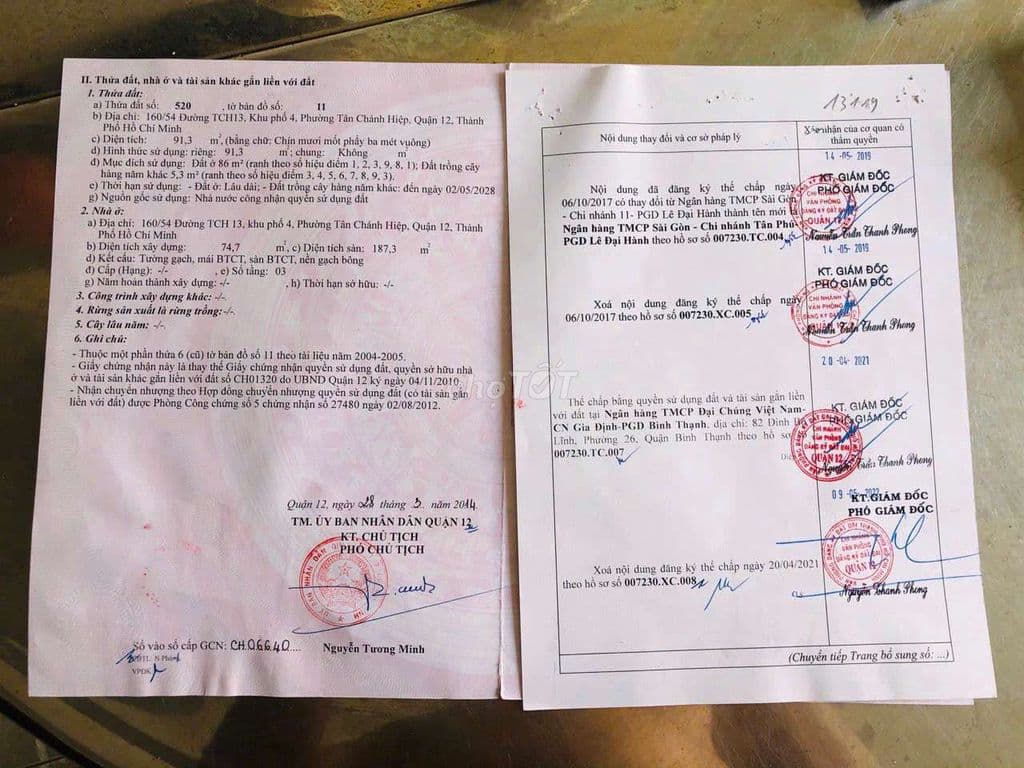 II. Thửa đất, nhà ở và tài sản khác gắn liền với đất
1. Thửa đất:
a) Thửa đất số: 520 , tờ bản đồ số: 11
b) Địa chỉ: 160/54 Đường TCH13, Khu phố 4, Phường Tân Chánh Hiệp, Quận 12, Thành
Phố Hồ Chí Minh
c) Diện tích: 91,3 m², (bằng chữ: Chín mươi mốt phẩy ba mét vuông)
d) Hình thức sử dụng: riêng: 91,3 m²; chung: Không m²
đ) Mục đích sử dụng: Đất ở 86 m² (ranh theo số hiệu điểm 1, 2, 3, 9, 8, 1); Đất trồng cây
hàng năm khác 5,3 m² (ranh theo số hiệu điểm 3, 4, 5, 6, 7, 8, 9, 3).
e) Thời hạn sử dụng: - Đất ở: Lâu dài; - Đất trồng cây hàng năm khác: đến ngày 02/05/2028
g) Nguồn gốc sử dụng: Nhà nước công nhận quyền sử dụng đất
2. Nhà ở:
a) Địa chỉ: 160/54 Đường TCH 13, khu phố 4, Phường Tân Chánh Hiệp, Quận 12, Thành
Phố Hồ Chí Minh
b) Diện tích xây dựng: 74,7 m², c) Diện tích sàn: 187,3 m²
d) Kết cấu: Tường gạch, mái BTCT, sàn BTCT, nền gạch bông
đ) Cấp (Hạng): -/- , e) Số tầng: 03
g) Năm hoàn thành xây dựng: -/- , h) Thời hạn sở hữu: -/-
3. Công trình xây dựng khác: -/-.
4. Rừng sản xuất là rừng trồng:-/-.
5. Cây lâu năm: -/-.
6. Ghi chú:
- Thuộc một phần thửa 6 (cũ) tờ bản đồ số 11 theo tài liệu năm 2004-2005.
- Giấy chứng nhận này là thay thế Giấy chứng nhận quyền sử dụng đất, quyền sở hữu nhà
ở và tài sản khác gắn liền với đất số CH01320 do UBND Quận 12 ký ngày 04/11/2010.
- Nhận chuyển nhượng theo Hợp đồng chuyển nhượng quyền sử dụng đất (có tài sản gắn
liền với đất) được Phòng Công chứng số 5 chứng nhận số 27480 ngày 02/08/2012.
Quận 12, ngày 28 tháng 3. năm 2014
TM. ỦY BAN NHÂN DÂN QUẬN 12
KT. CHỦ TỊCH
PHÓ CHỦ TỊCH
Số vào sổ cấp GCN: CH.06640....
Nguyễn Tương Minh
VPĐK
13119
Nội dung thay đổi và cơ sở pháp lý
Xác nhận của cơ quan có
thẩm quyền
14 -05- 2019
KT. GIÁM ĐỐC
PHÓ GIÁM ĐỐC
Nội dung đã đăng ký thế chấp ngày
06/10/2017 có thay đổi từ Ngân hàng TMCP Sài Gòn
- Chi nhánh 11- PGD Lê Đại Hành thành tên mới
Ngân hàng TMCP Sài Gòn - Chi nhánh Tân Phú-
PGD Lê Đại Hành theo hồ sơ số 007230.TC.004
CHI NHÁNH
VĂN PHÒNG
ĐĂNG KÝ ĐẤT ĐAI
QUẬN 12
Nguyễn Trần Thanh Phong
14 -05- 2019
KT. GIÁM ĐỐC
PHÓ GIÁM ĐỐC
Xoá nội dung đăng ký thế chấp ngày
06/10/2017 theo hồ sơ số 007230.XC.005
CHI NHÁNH
VĂN PHÒNG
ĐĂNG KÝ ĐẤT ĐAI
Nguyễn Trần Thanh Phong
20 -04- 2021
KT. GIÁM ĐỐC
PHÓ GIÁM ĐỐC
Thế chấp bằng quyền sử dụng đất và tài sản gắn liền
với đất tại Ngân hàng TMCP Đại Chúng Việt Nam-
CN Gia Định-PGD Bình Thạnh, địa chỉ: 82 Đinh Bộ
Lĩnh, Phường 26, Quận Bình Thạnh theo hồ sơ
007230.TC.007
CHI NHÁNH
VĂN PHÒNG
ĐĂNG KÝ ĐẤT ĐAI
QUẬN 12
Nguyễn Trần Thanh Phong
09 -05- 2022
KT.GIÁM ĐỐC
PHÓ GIÁM ĐỐC
Xoá nội dung đăng ký thế chấp ngày 20/04/2021
theo hồ sơ số 007230.XC.008
CHI NHÁNH
VĂN PHÒNG
ĐĂNG KÝ ĐẤT ĐAI
QUẬN 12
Nguyễn Thanh Phong
(Chuyển tiếp Trang bổ sung số: ...)
Chợ TỐT